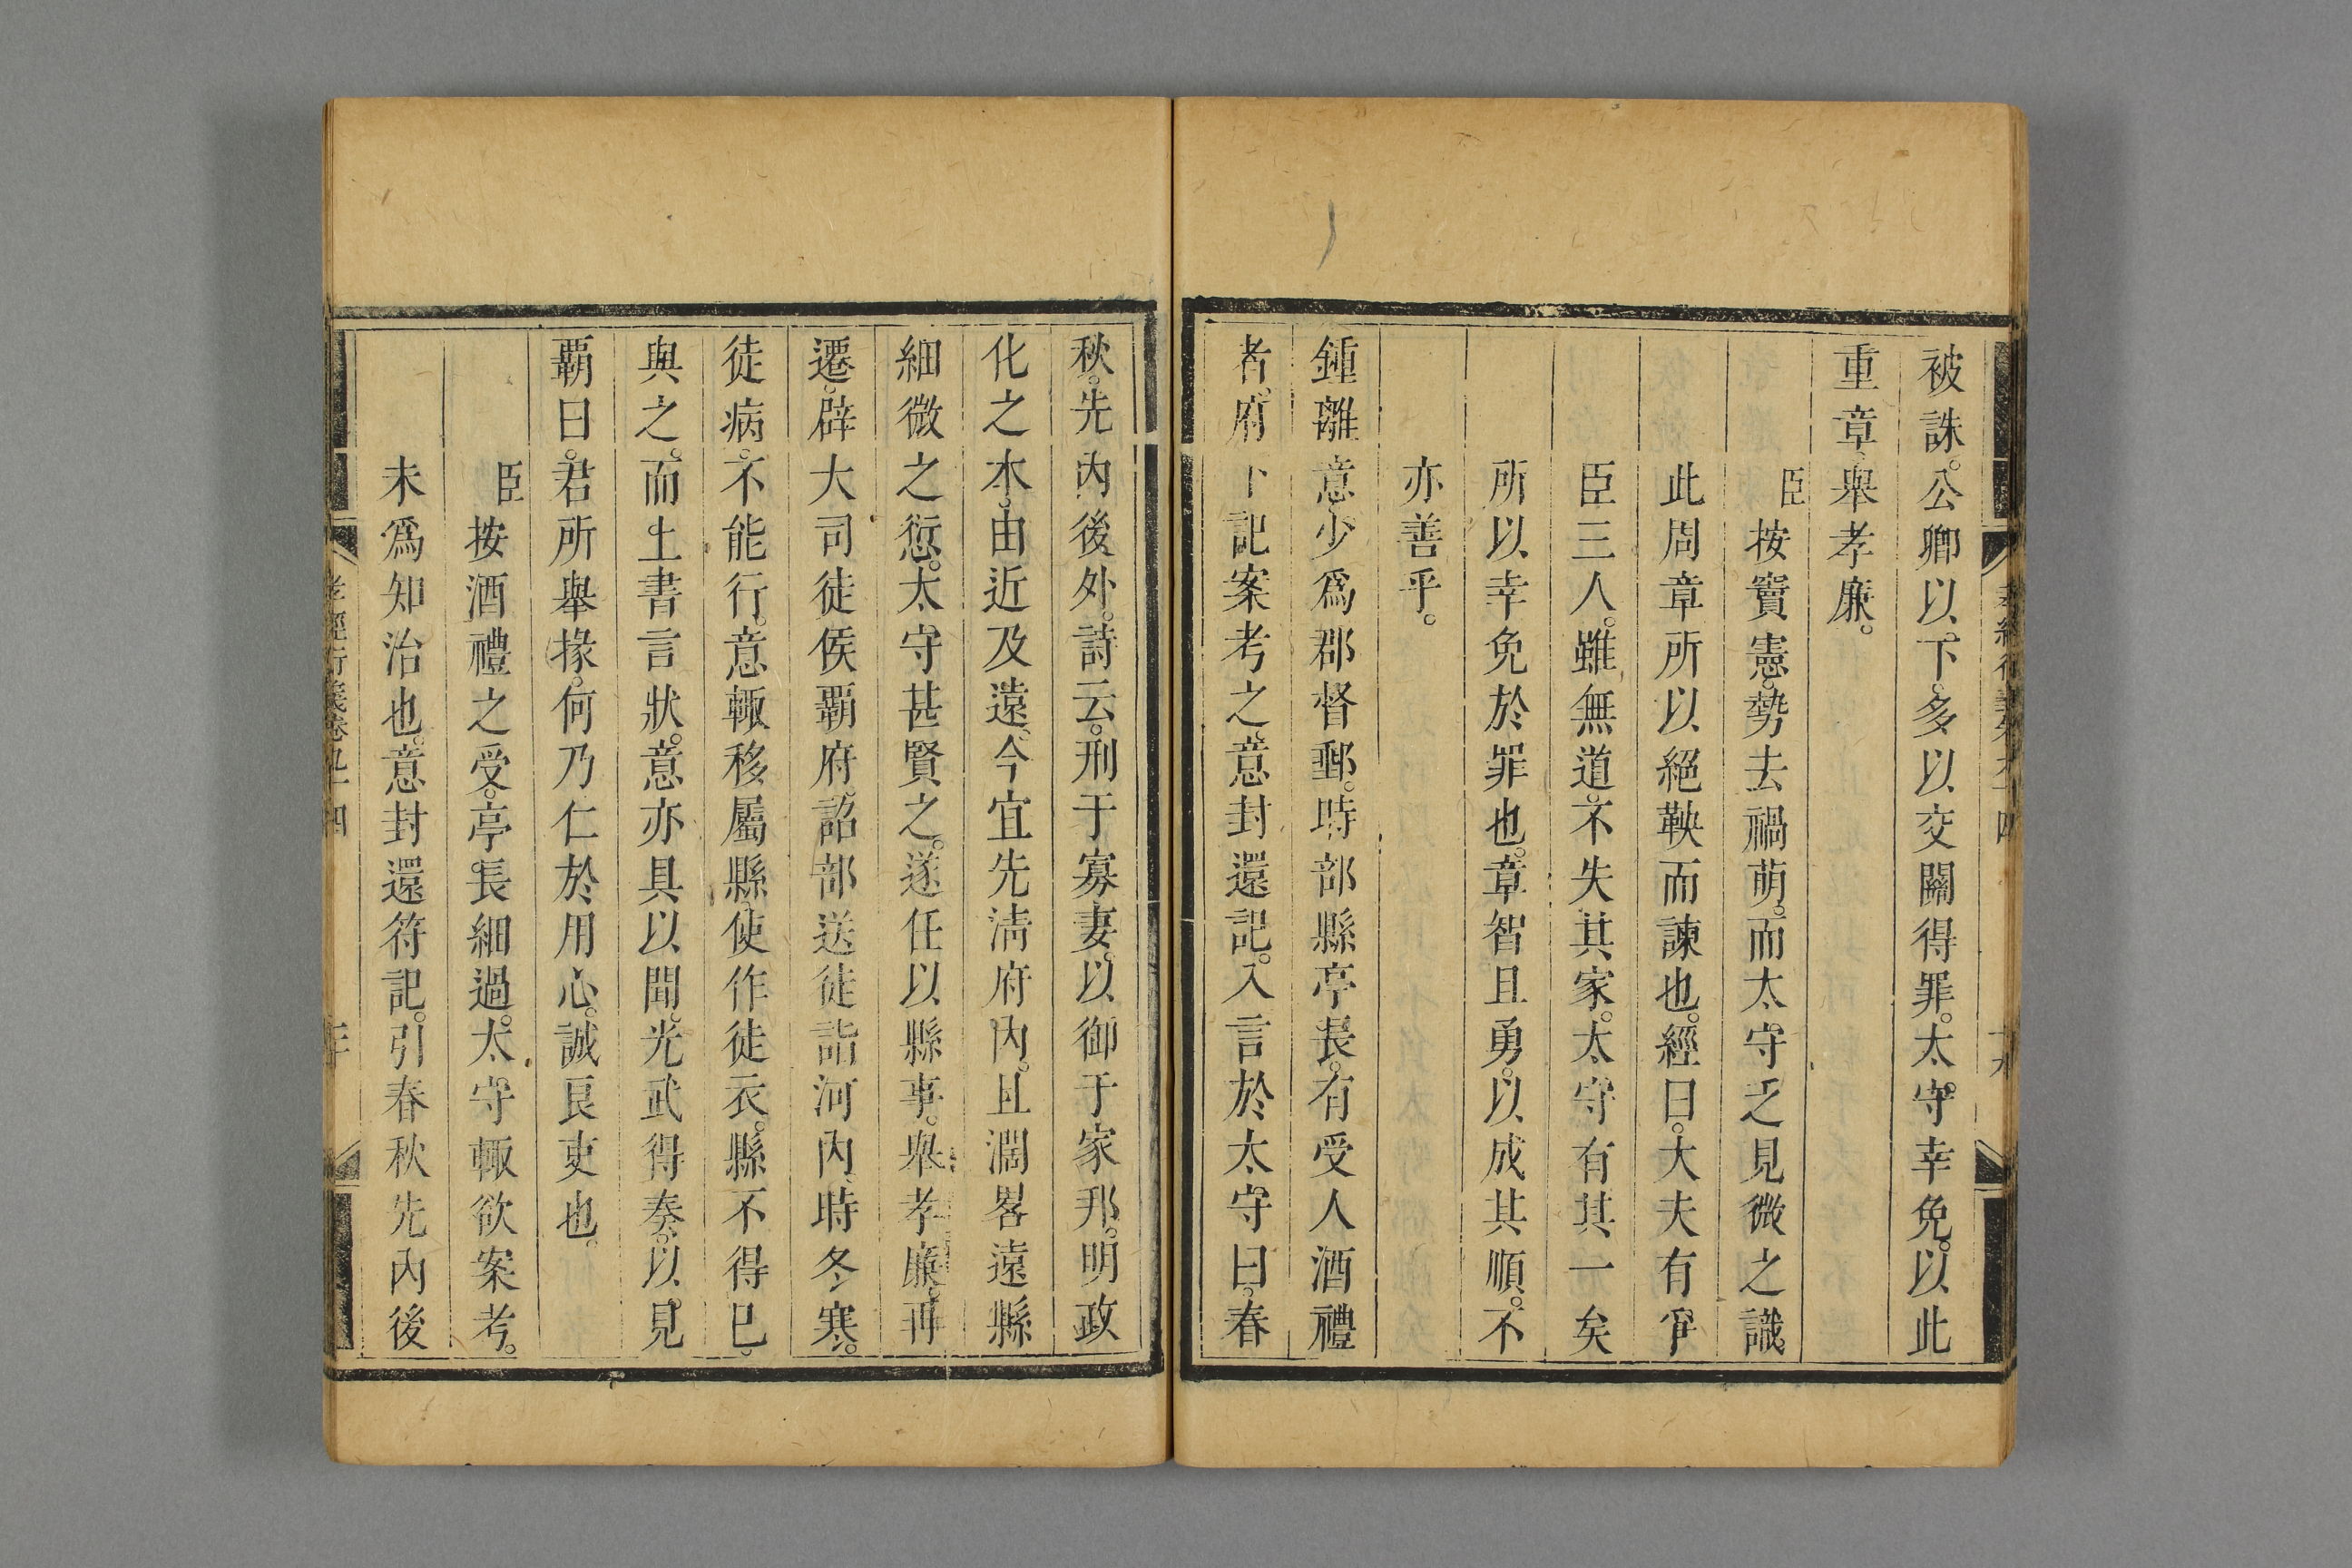 被誅。公卿以下。多以交關得罪。太守幸免。以此
重章。舉孝廉。
臣按竇憲。勢去禍萌。而太守乏見微之識。
此周章所以絕鞅而諫也。經曰。大夫有爭
臣三人。雖無道。不失其家。太守有其一矣
所以幸免於罪也。章智且勇。以成其順。不
亦善乎。
鍾離意少爲郡督郵。時部縣亭長。有受人酒禮
者。府下記案考之。意封還記。入言於太守曰。春
秋。先內後外。詩云。刑于寡妻。以御于家邦。明政
化之本。由近及遠。今宜先淸府內。且濶畧遠縣
細微之愆。太守甚賢之。遂任以縣事。舉孝廉。再
遷。辟大司徒侯覇府。詔部送徒詣河內。時冬寒。
徒病。不能行。意輒移屬縣。使作徒衣。縣不得已。
與之。而上書言狀。意亦具以聞。光武得奏。以見
覇曰。君所舉掾。何乃仁於用心。誠良吏也。
臣按酒禮之受。亭長細過。太守輒欲案考。
未爲知治也。意封還符記。引春秋先內後
孝經衍義卷九十四